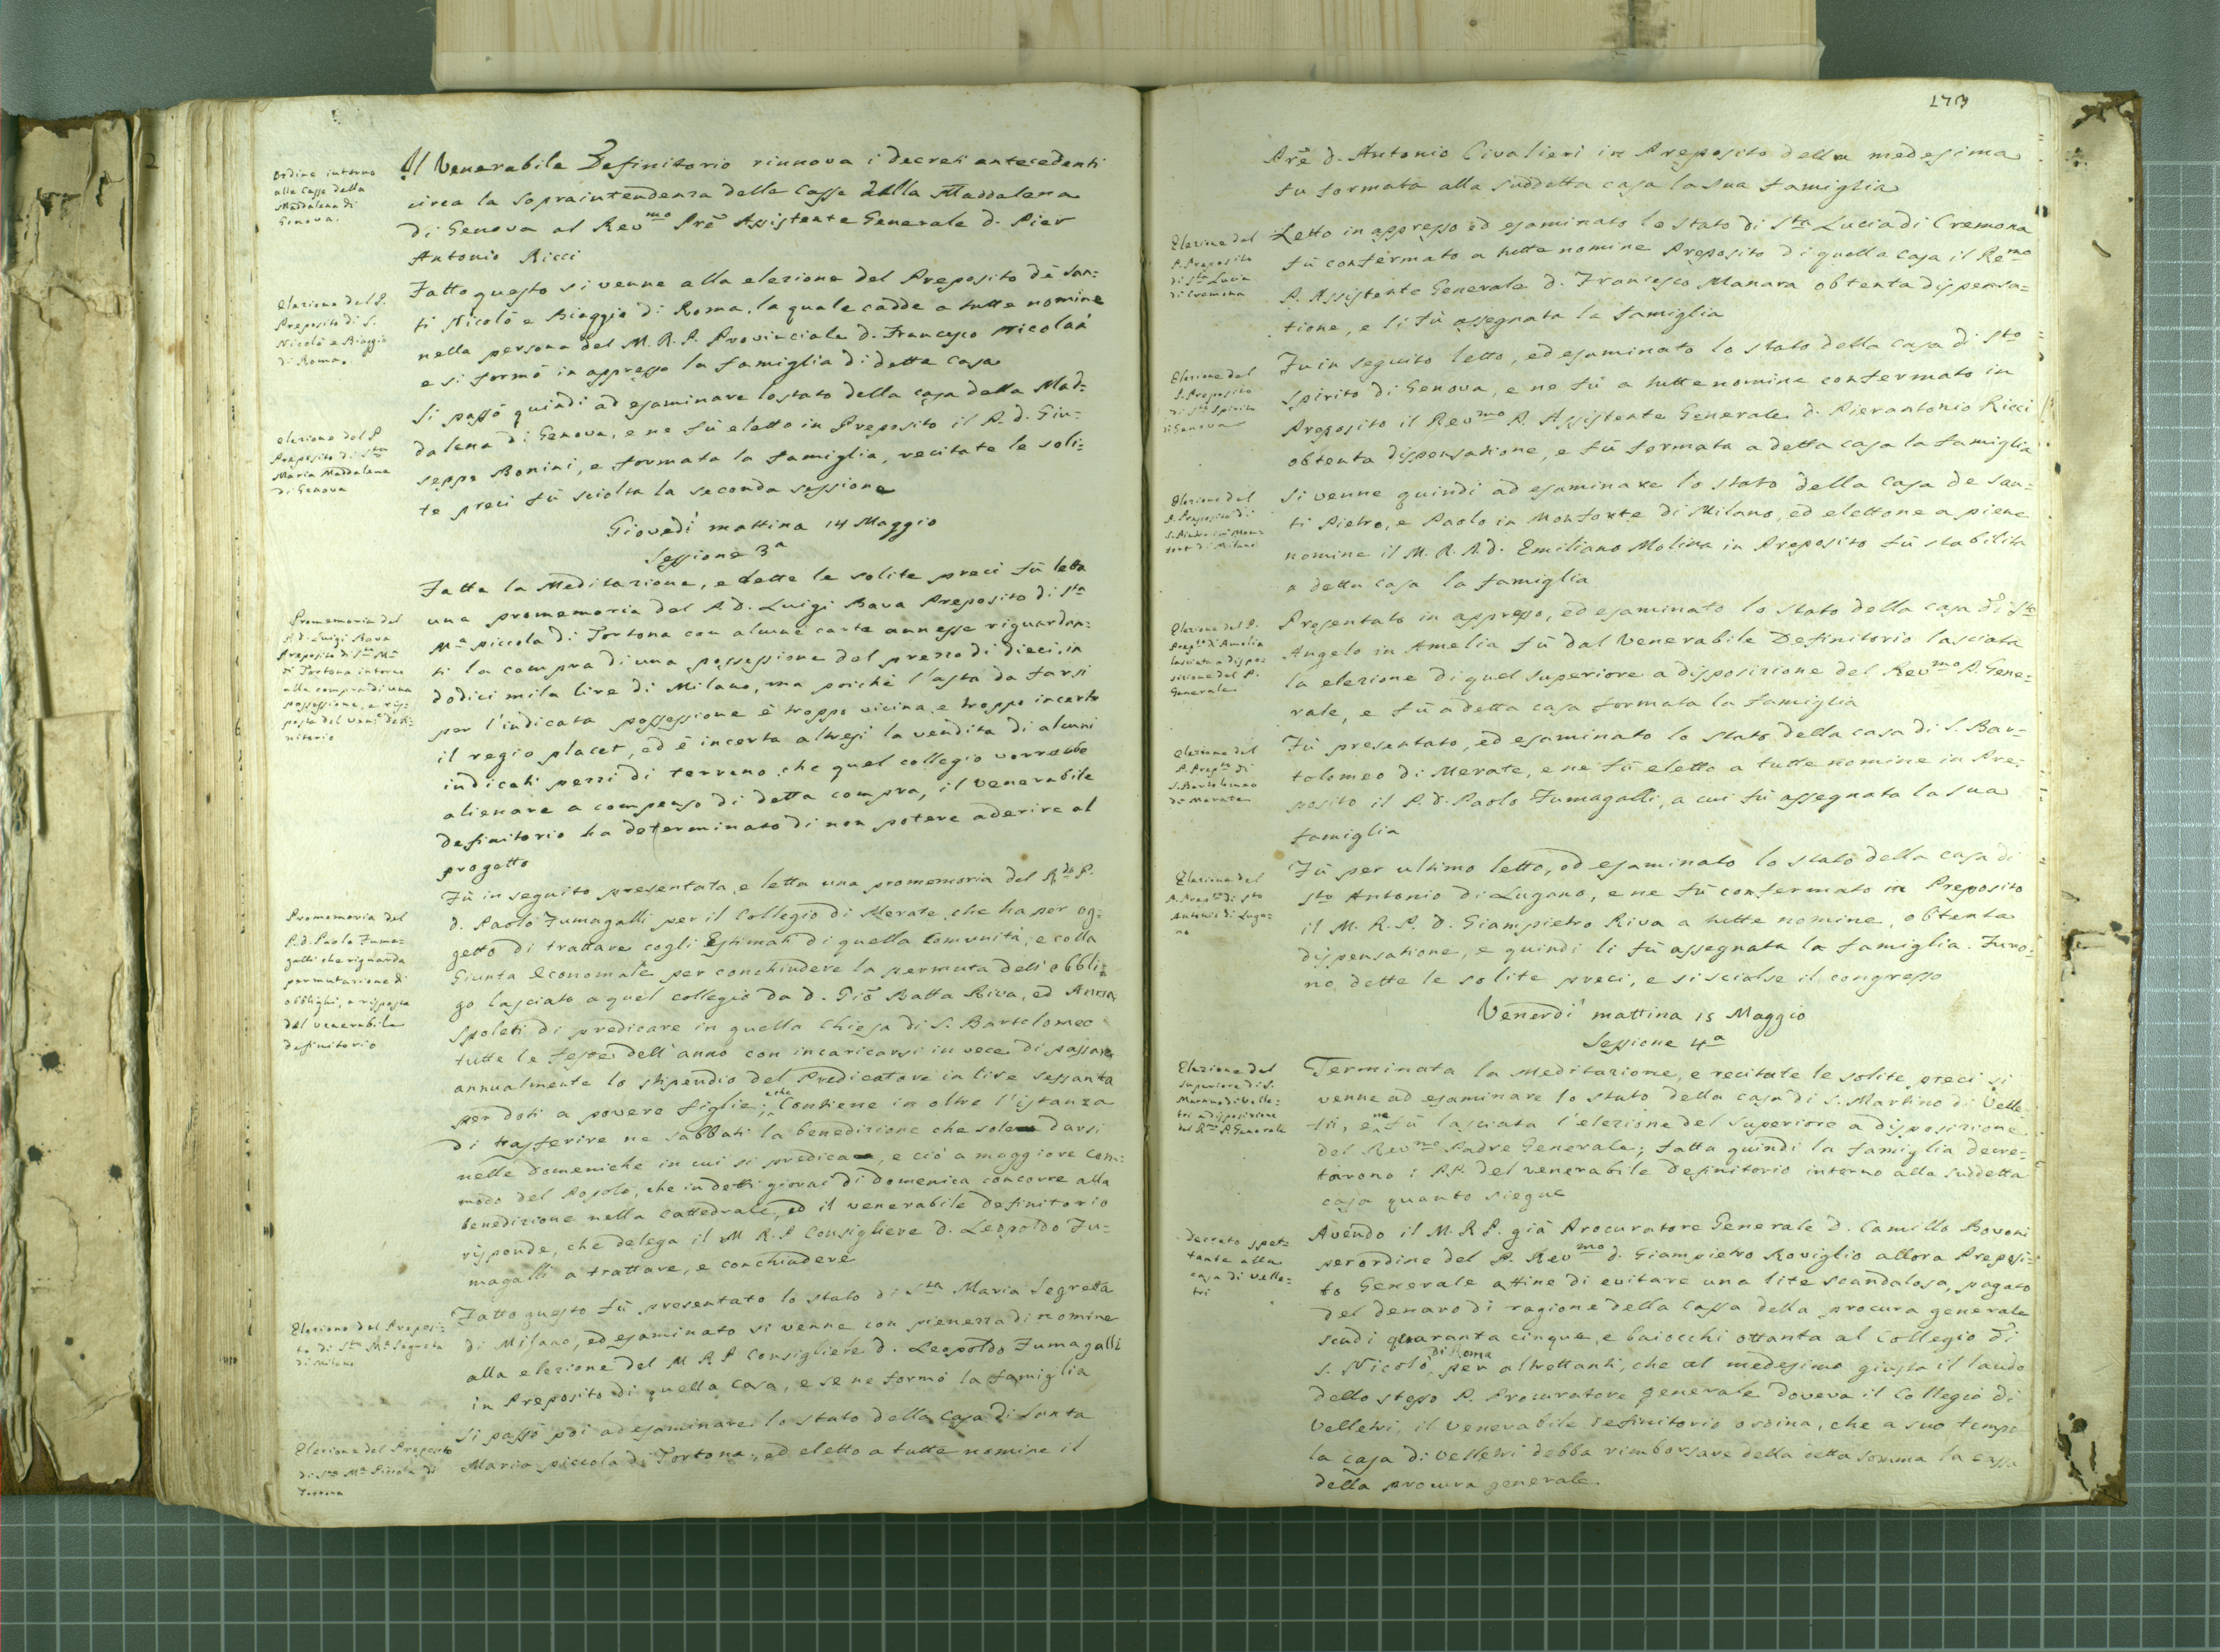 Ordine intorno
alle Casse della
Maddalena di
Genova.
Il Venerabile Definitorio rinnova i decreti antecedenti
circa la sopraintendenza delle Casse della Maddalena
di Genova al Rev.mo Prē Assistente Generale d. Pier
Antonio Ricci
Elezione del P.
Preposito di S.
Nicolò e Biaggio
di Roma.
Fatto questo si venne alla elezione del Preposito dē San=
ti Nicolò e Biaggio di Roma, la quale cadde a tutte nomine
nella persona del M. R. P. Provinciale d. Francesco Nicolai
e si formò in appresso la famiglia di detta casa
elezione del P.
Preposito di Sta
Maria Maddalena
di Genova
Si passò quindi ad esaminare lo stato della casa della Mad=
dalena di Genova, e ne fù eletto in Preposito il P. d. Giu=
seppe Bonini, e formata la famiglia, recitate le soli=
te preci fù sciolta la seconda sessione
Giovedì mattina 14 Maggio
Sessione 3a
Promemoria del
P. d. Luigi Bava
Preposito di Sta Ma
di Tortona intorno
alla compra di una
possessione, e ris=
posta del vene Defi=
nitorio
Fatta la Meditazione, e dette le solite preci fù letta
una promemoria del P. d. Luigi Bava Preposito di Sta
Ma piccola di Tortona con alcune carte annesse riguardan=
ti la compra di una possessione del prezzo di dieci in
dodici mila lire di Milano, ma poichè l'asta da farsi
per l'indicata possessione è troppo vicina e troppo incerto
il regio placet, ed è incerta altresì la vendita di alcuni
indicati pezzi di terreno che quel collegio vorrebbe
alienare a compenso di detta compra, il venerabile
definitorio ha determinato di non potere aderire al
progetto
Promemoria del
P. d. Paolo Fuma=
galli che riguarda
permutazione di
obblighi, e risposta
del venerabile
definitorio
Fù in seguito presentata, e letta una promemoria del R.do P.
d. Paolo Fumagalli per il Collegio di Merate, che ha per og=
getto di trattare cogli Estimati di quella Comunità, e colla
Giunta Economale per conchiudere la permuta dell'obbli=
go lasciato a quel collegio da d. Giō Batta Riva, ed Anna
Spoleti di predicare in quella Chiesa di S. Bartolomeo
tutte le Feste dell'anno con incaricarsi in vece di passare
annualmente lo stipendio del Predicatore in lire sessanta
per doti a povere figlie; e che Contiene in oltre l'istanza
di trasferire ne sabbati la benedizione che sole darsi
nelle Domeniche in cui si predica, e ciò a maggiore com=
modo del Popolo, che in detti giorni di Domenica concorre alla
benedizione nella Cattedrale, ed il venerabile definitorio
risponde, che delega il M. R. P. Consigliere D. Leopoldo Fu=
magalli a trattare, e conchiudere
Elezione del Preposi=
to di Sta Ma Segreta
di Milano
Fatto questo fù presentato lo stato di Sta Maria Segreta
di Milano, ed esaminato si venne con pienezza di nomine
alla elezione del M R P Consigliere D. Leopoldo Fumagalli
in Preposito di quella casa, e se ne formò la famiglia
Elezione del Preposito
di Sta Ma Piccola di
Tortona
Si passò poi ad esaminare lo stato della Casa di Santa
Maria piccola di Tortona, ed eletto a tutte nomine il
173
Prē d. Antonio Civalieri in Preposito della medesima
fu formata alla suddetta casa la sua famiglia
Elezione del
P. Preposito
di Sta Lucia
di Cremona
Letto in appresso ed esaminato lo stato di Sta Lucia di Cremona
fù confermato a tutte nomine Preposito di quella casa il Remo
P. Assistente Generale d. Francesco Manara obtenta dispensa=
tione, e li fù assegnata la famiglia
Elezione del
P. Preposito
di Sto Spirito
di Genova
Fu in seguito letto, ed esaminato lo stato della casa di Sto
Spirito di Genova, e ne fù a tutte nomine confermato in
Preposito il Revmo P. Assistente Generale d. Pierantonio Ricci
obtenta dispensatione, e fù formata a detta casa la famiglia
Elezione del
P. Preposito di
S. Pietro in Mon=
forte di Milano
Si venne quindi ad esaminare lo stato della Casa de San=
ti Pietro, e Paolo in Monforte di Milano, ed elettone a piene
nomine il M. R. P. d. Emiliano Molina in Preposito fù stabilita
a detta casa la famiglia
Elezione del P.
Prepto d'Amelia
lasciata a dispo=
sizione del P.
Generale
Presentato in appresso, ed esaminato lo stato della casa di Sto
Angelo in Amelia fù dal Venerabile Definitorio lasciata
la elezione di quel superiore a disposizione del Revmo P. Gene=
rale, e fù a detta casa formata la famiglia
Elezione del
P. Prepto di
S. Bartolomeo
di Merate
Fù presentato, ed esaminato lo stato della casa di S. Bar=
tolomeo di Merate, e ne fù eletto a tutte nomine in Pre=
posito il P. d. Paolo Fumagalli, a cui fù assegnata la sua
famiglia
Elezione del
P. Prepto di Sto
Antonio di Luga=
no
Fù per ultimo letto, ed esaminato lo stato della casa di
Sto Antonio di Lugano, e ne fù confermato in Preposito
il M. R. P. d. Giampietro Riva a tutte nomine, obtenta
dispensatione, e quindi li fù assegnata la famiglia. Furo=
no dette le solite preci, e si sciolse il congresso
Venerdì mattina 15 Maggio
Sessione 4a
Elezione del
Superiore di S.
Martino di Velle=
tri a disposizione
del Rmo P. Generale
Terminata la meditazione, e recitate le solite preci si
venne ad esaminare lo stato della casa di S. Martino di Velle=
tri, e ne fù lasciata l'elezione del Superiore a disposizione
del Revmo Padre Generale; fatta quindi la famiglia decre=
tarono i PP. del venerabile definitorio intorno alla suddetta
casa quanto siegue
Decreto spet=
tante alla
casa di Velle=
tri
Avendo il M. R. P. già Procuratore Generale D. Camillo Bovoni
per ordine del P. Revmo d. Giampietro Roviglio allora Preposi=
to Generale affine di evitare una lite scandalosa, pagato
del denaro di ragione della Cassa della procura generale
scudi quaranta cinque, e baiocchi ottanta al Collegio di
S. Nicolò di Roma per altrettanti, che al medesimo giusta il laudo
dello stesso P. Procuratore generale doveva il Collegio di
Velletri, il Venerabile definitorio ordina, che a suo tempo
la casa di Velletri debba rimborsare della detta somma la cassa
della procura generale.